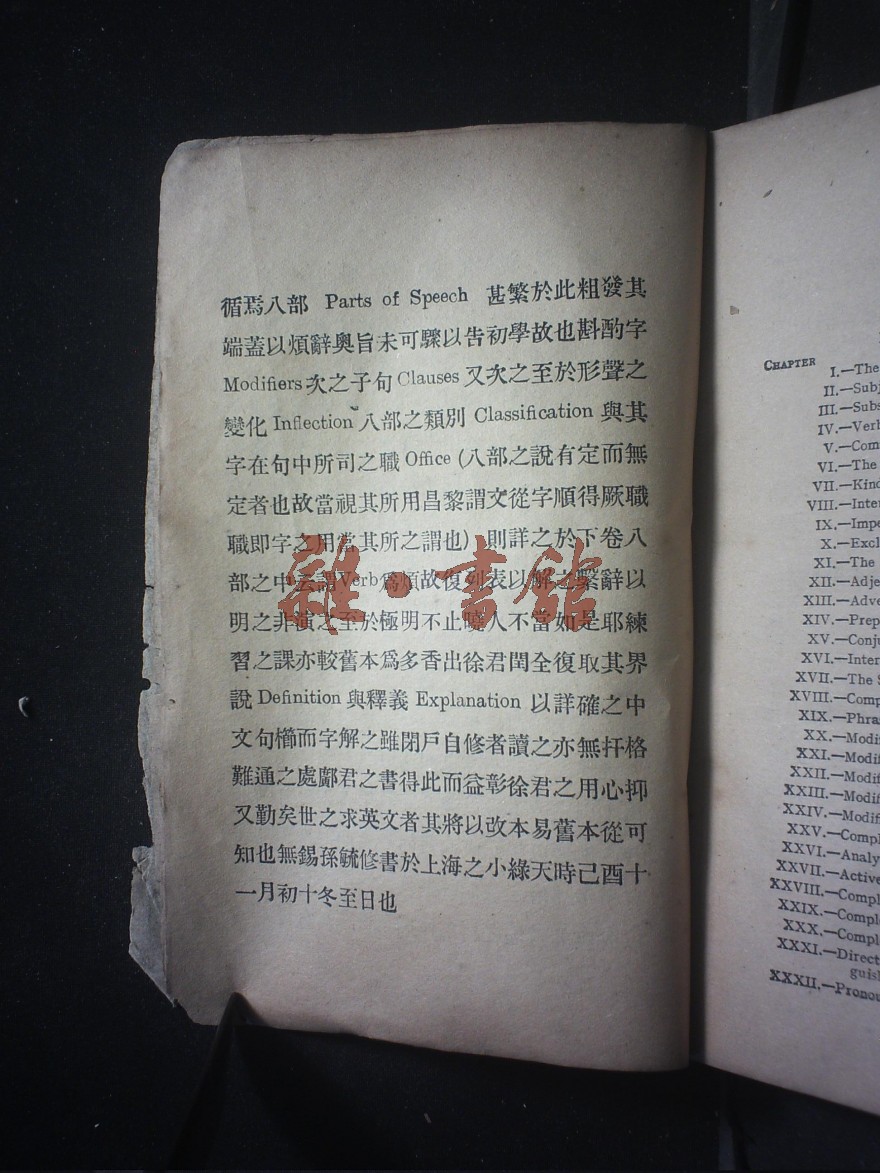 循焉八部 Parts of Speech 甚繁於此粗發其
端蓋以煩辭奧旨未可驟以告初學故也斟酌字
Modifiers 次之子句 Clauses 又次之至於形聲之
變化 Inflection 八部之類別 Classification 與其
字在句中所司之職 Office (八部之說有定而無
定者也故當視其所用昌黎謂文從字順得厥職
職即字之用當其所之謂也) 則詳之於下卷八
部之中云謂 Verb 爲煩故復列表以解之繫辭以
明之非演之至於極明不止曉人不當如是耶練
習之課亦較舊本爲多香出徐君閏全復取其界
說 Definition 與釋義 Explanation 以詳確之中
文句櫛而字解之雖閉戶自修者讀之亦無扞格
難通之處鄺君之書得此而益彰徐君之用心抑
又勤矣世之求英文者其將以改本易舊本從可
知也無錫孫毓修書於上海之小綠天時己酉十
一月初十冬至日也
雜·書館
CHAPTER
I.—The
II.—Subj
III.—Subs
IV.—Verb
V.—Com
VI.—The
VII.—Kind
VIII.—Inter
IX.—Impe
X.—Excl
XI.—The
XII.—Adje
XIII.—Adve
XIV.—Prep
XV.—Conju
XVI.—Inter
XVII.—The S
XVIII.—Comp
XIX.—Phras
XX.—Modi
XXI.—Modif
XXII.—Modif
XXIII.—Modif
XXIV.—Modif
XXV.—Compl
XXVI.—Analy
XXVII.—Active
XXVIII.—Compl
XXIX.—Comple
XXX.—Compl
XXXI.—Direct
guish
XXXII.—Pronou